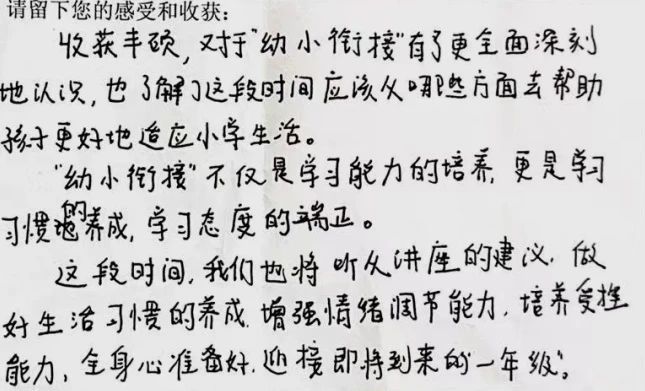 请留下您的感受和收获：
收获丰硕，对于“幼小衔接”有了更全面深刻
地认识，也了解了这段时间应该从哪些方面去帮助
孩子更好地适应小学生活。
“幼小衔接”不仅是学习能力的培养，更是学习
习惯的养成，学习态度的端正。
这段时间，我们也将听从讲座的建议，做
好生活习惯的养成，增强情绪调节能力，培养受挫
能力，全身心准备好，迎接即将到来的一年级。